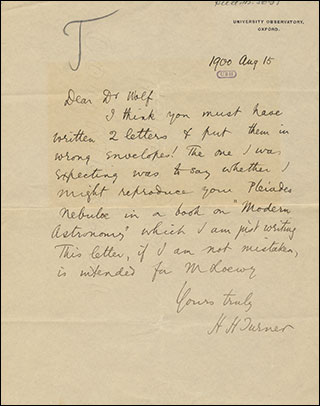 T
UNIVERSITY OBSERVATORY,
OXFORD.
1900 Aug 15
Dear Dr Wolf
I think you must have
written 2 letters & put them in
wrong envelopes! The one I was
expecting was to say whether I
might reproduce your Pleiades
Nebulae in a book on "Modern
Astronomy" which I am just writing
This letter, if I am not mistaken,
is intended for M. Loewy
Yours truly
H H Turner